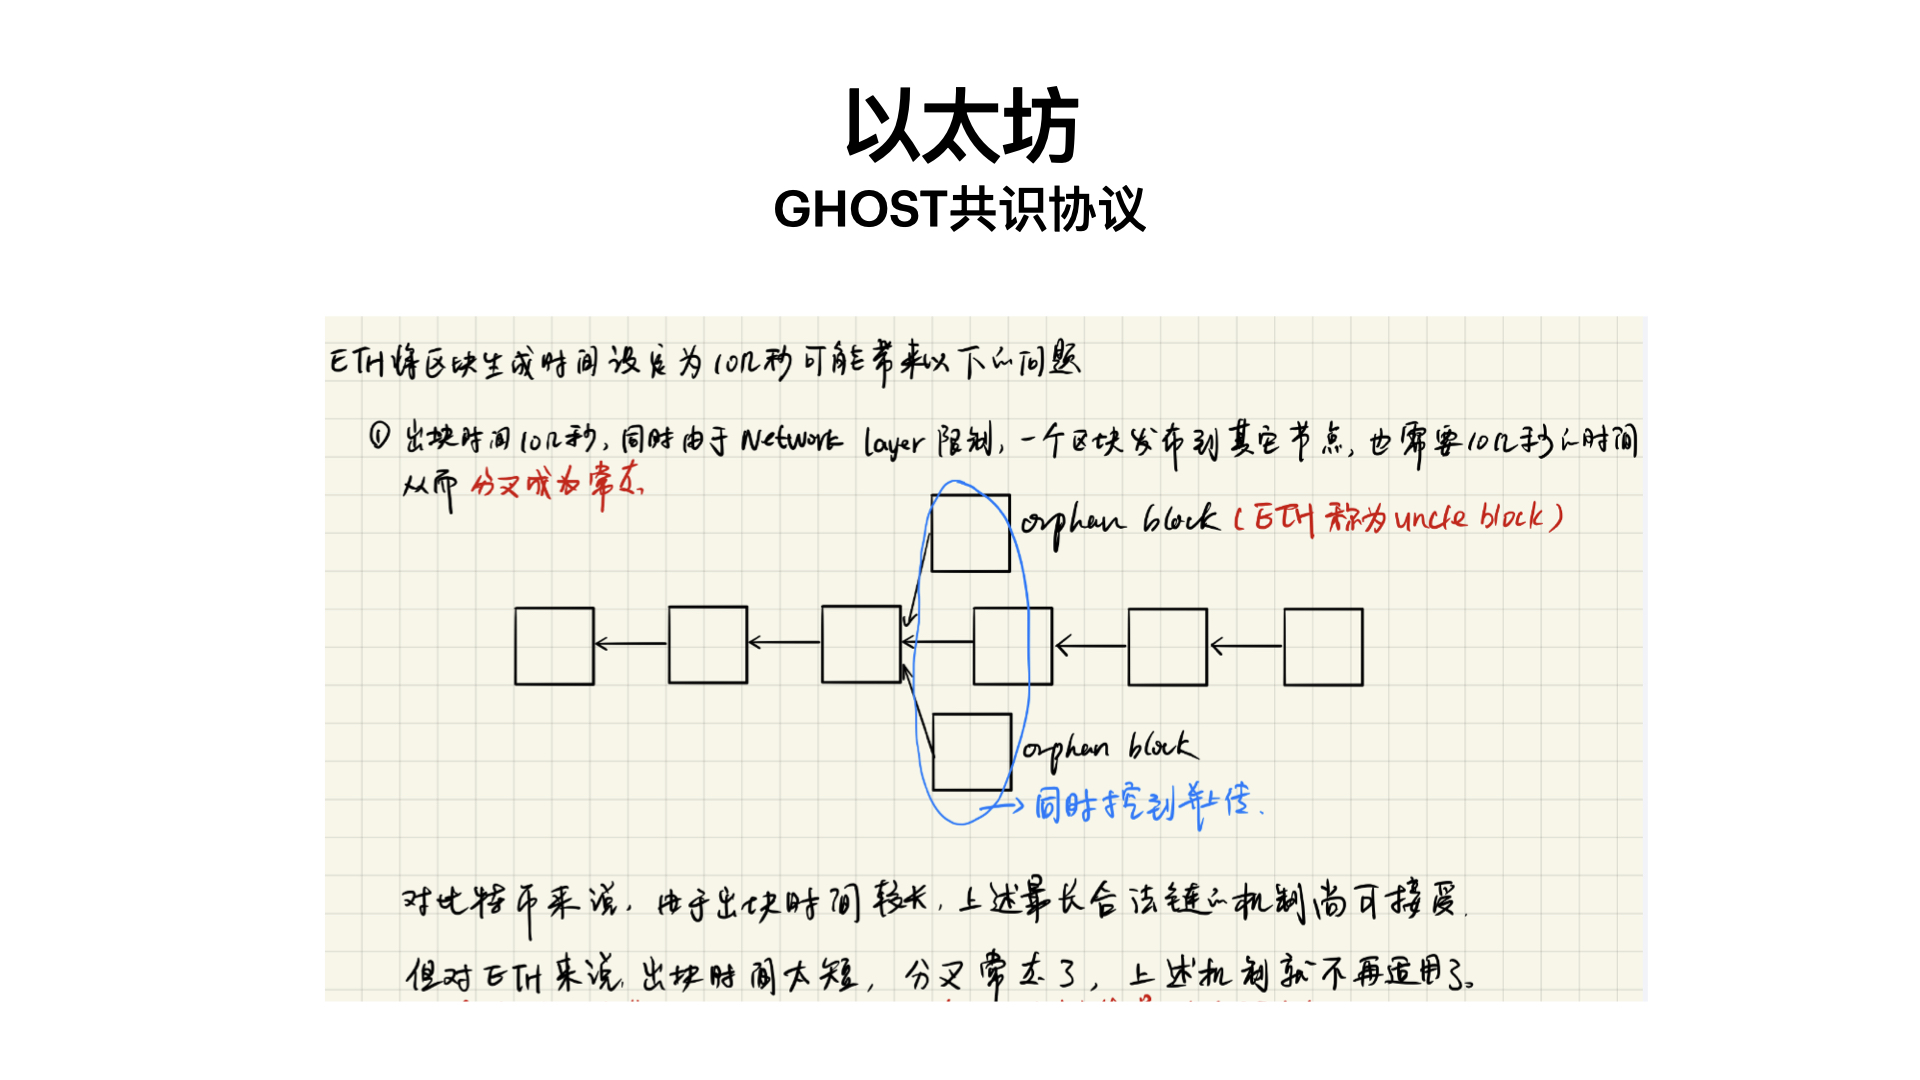 以太坊
GHOST共识协议
ETH将区块生成时间设定为10几秒可能带来以下的问题
① 出块时间10几秒,同时由于Network layer限制,一个区块发布到其它节点,也需要10几秒的时间
从而 分叉成为常态
orphan block (ETH 称为uncle block)
orphan block
→ 同时挖到并上传.
对比特币来说,由于出块时间较长,上述最长合法链的机制尚可接受.
但对ETH来说,出块时间太短,分叉常态了,上述机制就不再适用了。